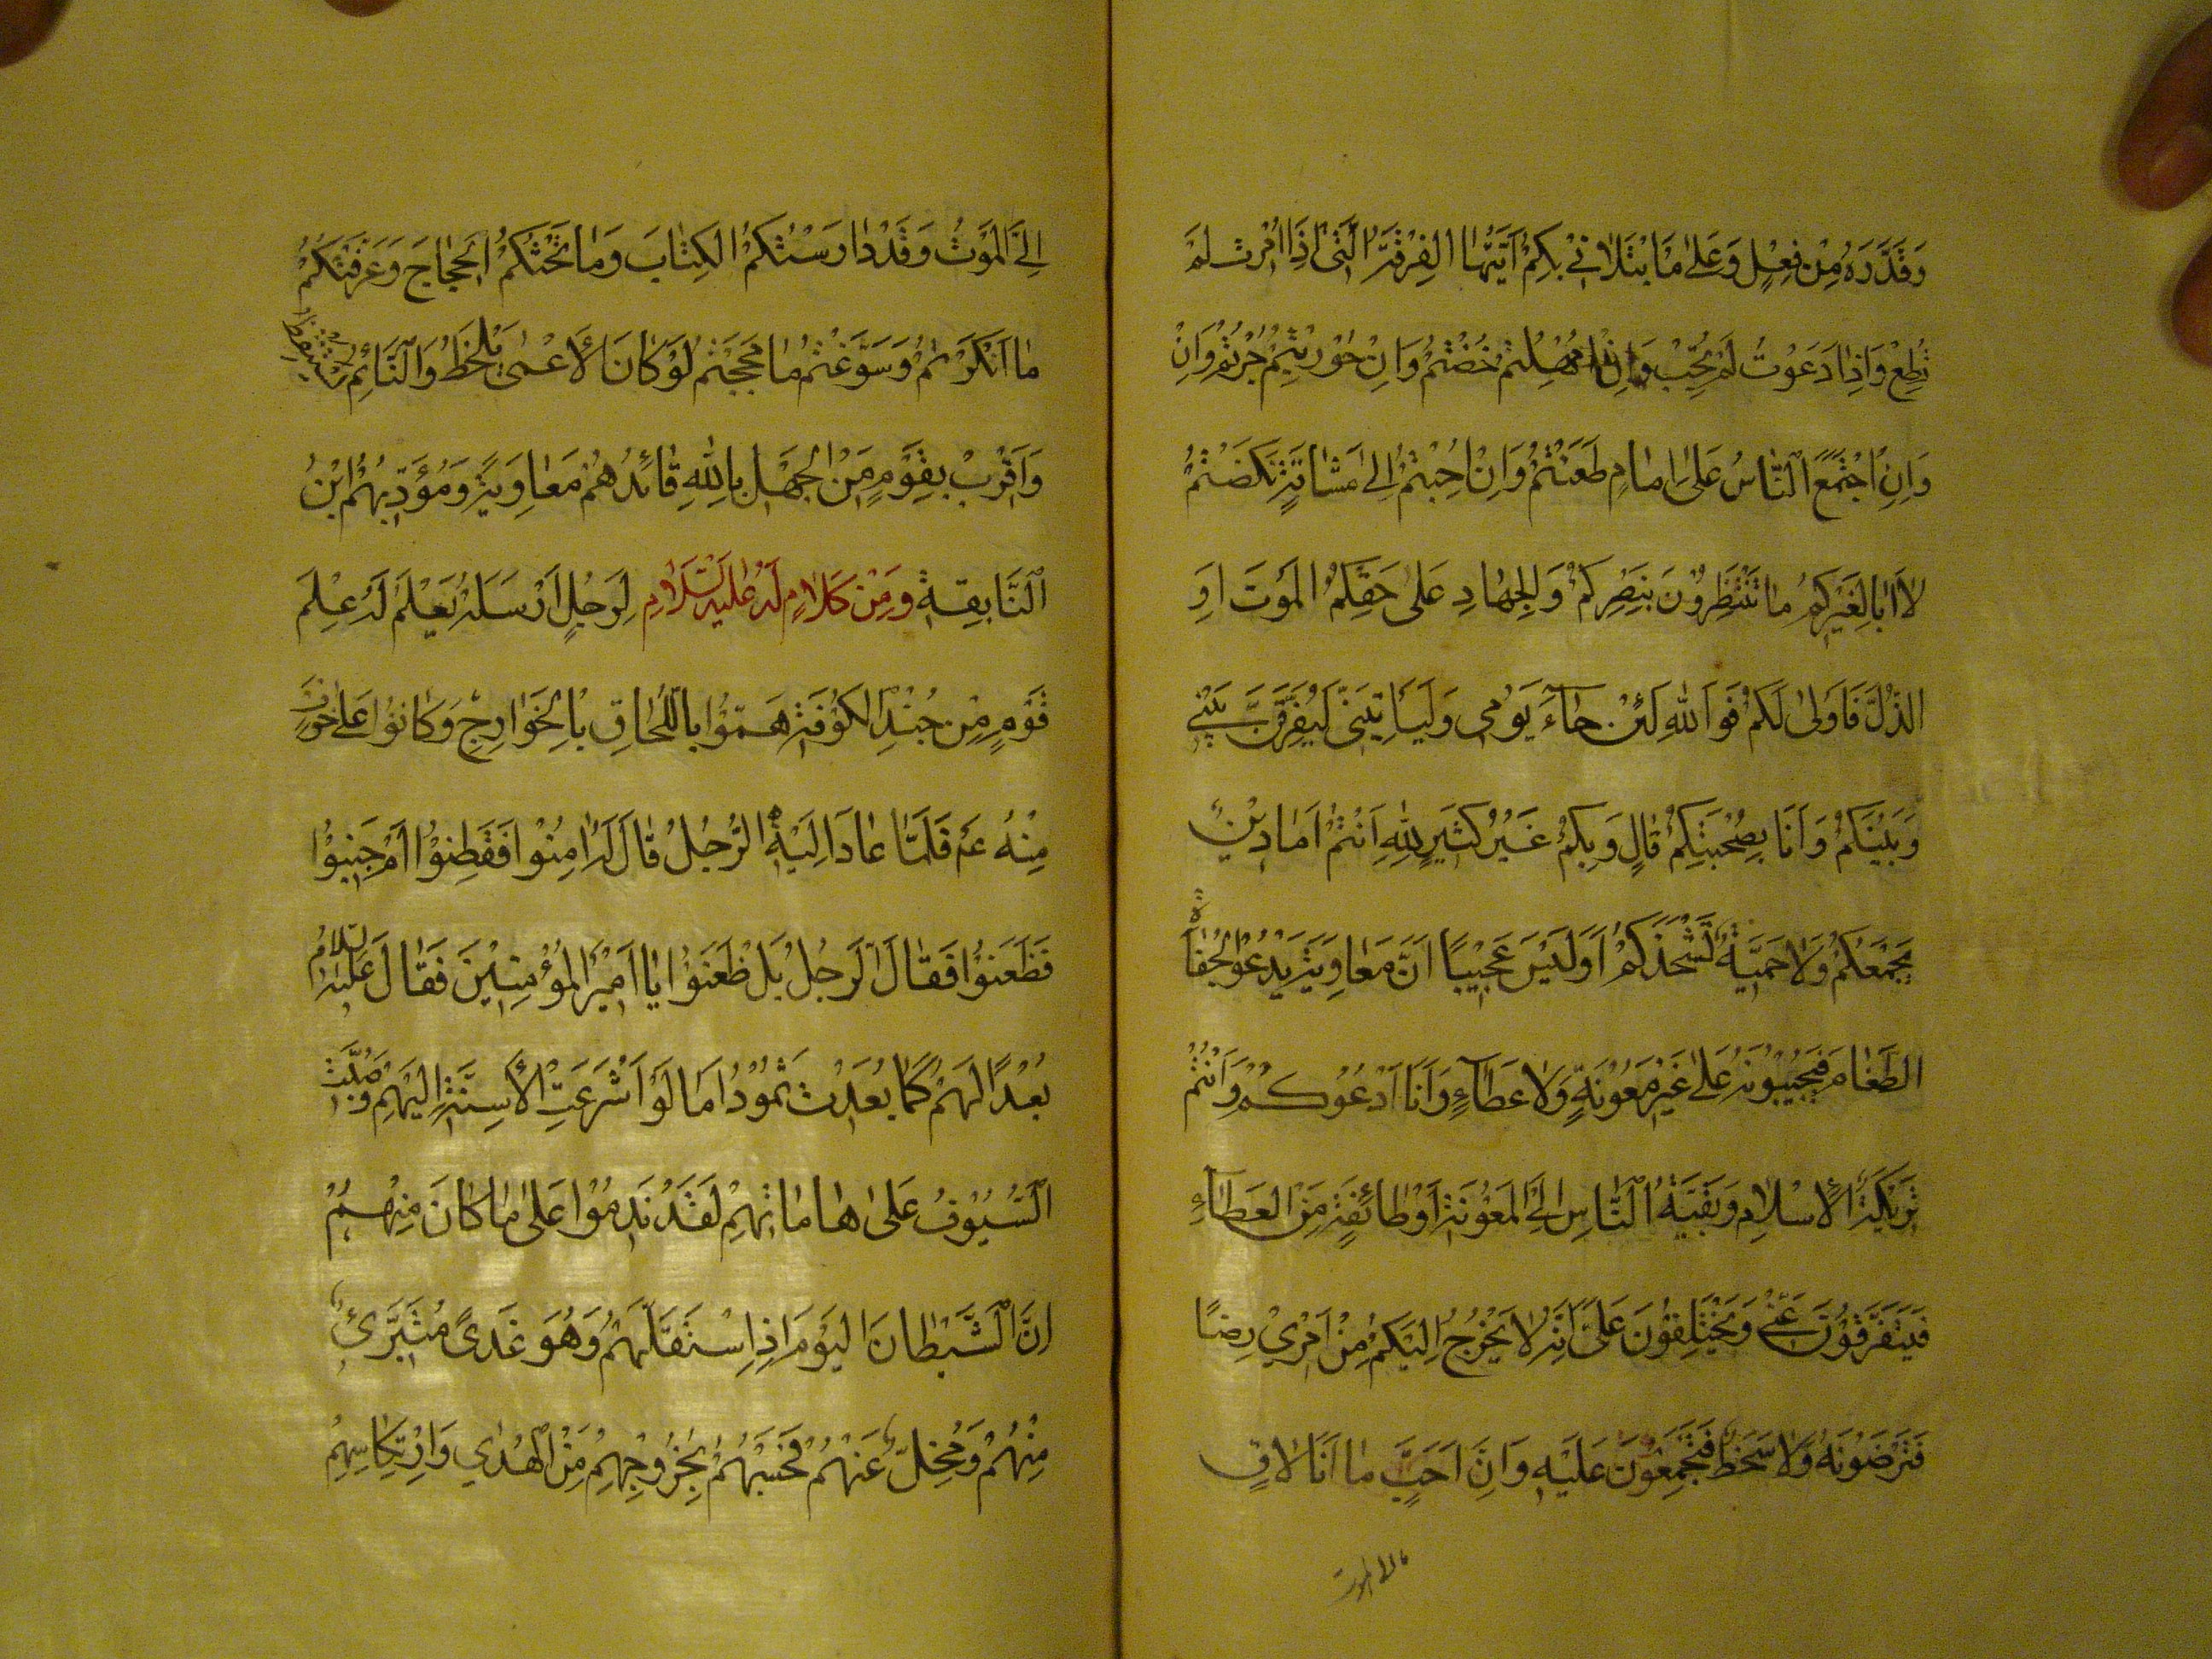 وَقَدَّرَهُ مِنْ فِعْلٍ وَعَلٰى مَا ابْتَلَانِيْ بِكُمْ اَيَّتُهَا الفِرْقَةُ الَّتِىْ اِذَا اَمَرْتُ لَمْ
تُطِعْ وَاِذَا دَعَوْتُ لَمْ تُجِبْ وَاِنْ اُمْهِلْتُمْ خُضْتُمْ وَاِنْ حُوْرِبْتُمْ خُرْتُمْ وَاِنْ
وَاِنِ اجْتَمَعَ النَّاسُ عَلٰى اِمَامٍ طَعَنْتُمْ وَاِنْ اُجِبْتُمْ اِلٰى مَشَاقَّةٍ نَكَصْتُمْ
لَا اَبَا لِغَيْرِكُمْ مَا تَنْتَظِرُوْنَ بِنَصْرِكُمْ وَالجِهَادِ عَلٰى حَقِّكُمْ المَوْتَ اَوِ
الذُّلَّ فَاَوْلٰى لَكُمْ فَوَاللهِ لَئِنْ جَاءَ يَوْمِي وَلَيَأْتِيَنِّيْ لَيُفَرِّقَنَّ بَيْنِيْ
وَبَيْنَكُمْ وَاَنَا بِصُحْبَتِكُمْ قَالٍ وَبِكُمْ غَيْرُ كَثِيْرٍ لِلّٰهِ اَنْتُمْ اَمَا دِيْنٌ
يَجْمَعُكُمْ وَلَا حَمِيَّةٌ تَشْحَذُكُمْ اَوَلَيْسَ عَجِيْبًا اَنَّ مَعَاوِيَةَ يَدْعُوْ الجُفَاةَ
الطَّغَامَ فَيُجِيْبُوْنَهُ عَلٰى غَيْرِ مَعُوْنَةٍ وَلَا عَطَاءٍ وَاَنَا اَدْعُوْكُمْ وَاَنْتُمْ
تَرِيْكَةُ الْاِسْلَامِ وَبَقِيَّةُ النَّاسِ اِلَى المَعُوْنَةِ اَوْ طَائِفَةٍ مِنَ العَطَاءِ
فَيَتَفَرَّقُوْنَ عَنِّيْ وَيَخْتَلِفُوْنَ عَلَىَّ اِنَّهُ لَا يَخْرُجُ اِلَيْكُمْ مِنْ اَمْرِيْ رِضًا
فَتَرْضَوْنَهُ وَلَا سَخَطٌ فَتَجْتَمِعُوْنَ عَلَيْهِ وَاِنَّ اَحَبَّ مَا اَنَا لَاقٍ
الى الموت
اِلَىَّ المَوْتُ وَقَدْ دَارَسْتُكُمُ الْكِتَابَ وَفَاتَحْتُكُمُ الحِجَاجَ وَعَرَّفْتُكُمْ
مَا اَنْكَرْتُمْ وَسَوَّغْتُكُمْ مَا مَجَجْتُمْ لَوْ كَانَ الْاَعْمٰى يَلْحَظُ وَالنَّائِمُ يَسْتَيْقِظُ
وَاَقْرِبْ بِقَوْمٍ مِنَ الْجَهْلِ بِاللهِ قَائِدُهُمْ مَعَاوِيَةُ وَمُؤَدِّبُهُمْ ابْنُ
النَّابِغَةِ وَمِنْ كَلَامٍ لَهُ عَلَيْهِ السَّلَامِ لِرَجُلٍ اَرْسَلَهُ يَعْلَمُ لَهُ عِلْمَ
قَوْمٍ مِنْ جُنْدِ الكُوْفَةِ هَمُّوْا بِاللِّحَاقِ بِالْخَوَارِجِ وَكَانُوْا عَلٰى خَوْفٍ
مِنْهُ ع مَ فَلَمَّا عَادَ اِلَيْهِ الرَّجُلُ قَالَ لَهُ اَمِنُوْا فَقَطَنُوْا اَمْ جَبَنُوْا
فَظَعَنُوْا فَقَالَ الرَّجُلُ بَلْ ظَعَنُوْا يَا اَمِيْرَ المُؤْمِنِيْنَ فَقَالَ عَلَيْهِ السَّلَامُ
بُعْدًا لَهُمْ كَمَا بَعُدَتْ ثَمُوْدُ اَمَا لَوْ اَشْرَعَتِ الْاَسِنَّةُ اِلَيْهِمْ وَصُبَّتْ
السُّيُوْفُ عَلٰى هَامَاتِهِمْ لَقَدْ نَدِمُوْا عَلٰى مَا كَانَ مِنْهُمْ
اِنَّ الشَّيْطَانَ اليَوْمَ اِذِ اسْتَفَلَّهُمْ وَهُوَ غَدًى مُتَبَرِّئٌ
مِنْهُمْ وَمُخِلٌّ عَنْهُمْ فَحَسْبُهُمْ بِخُرُوْجِهِمْ مِنَ الْهُدٰي وَارْتِكَاسِهِمْ